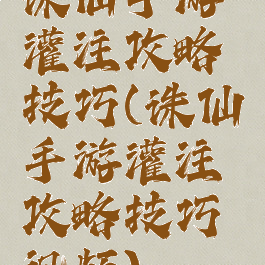 诛仙手游
灌注攻略
技巧(诛仙
手游灌注
攻略技巧
视频)